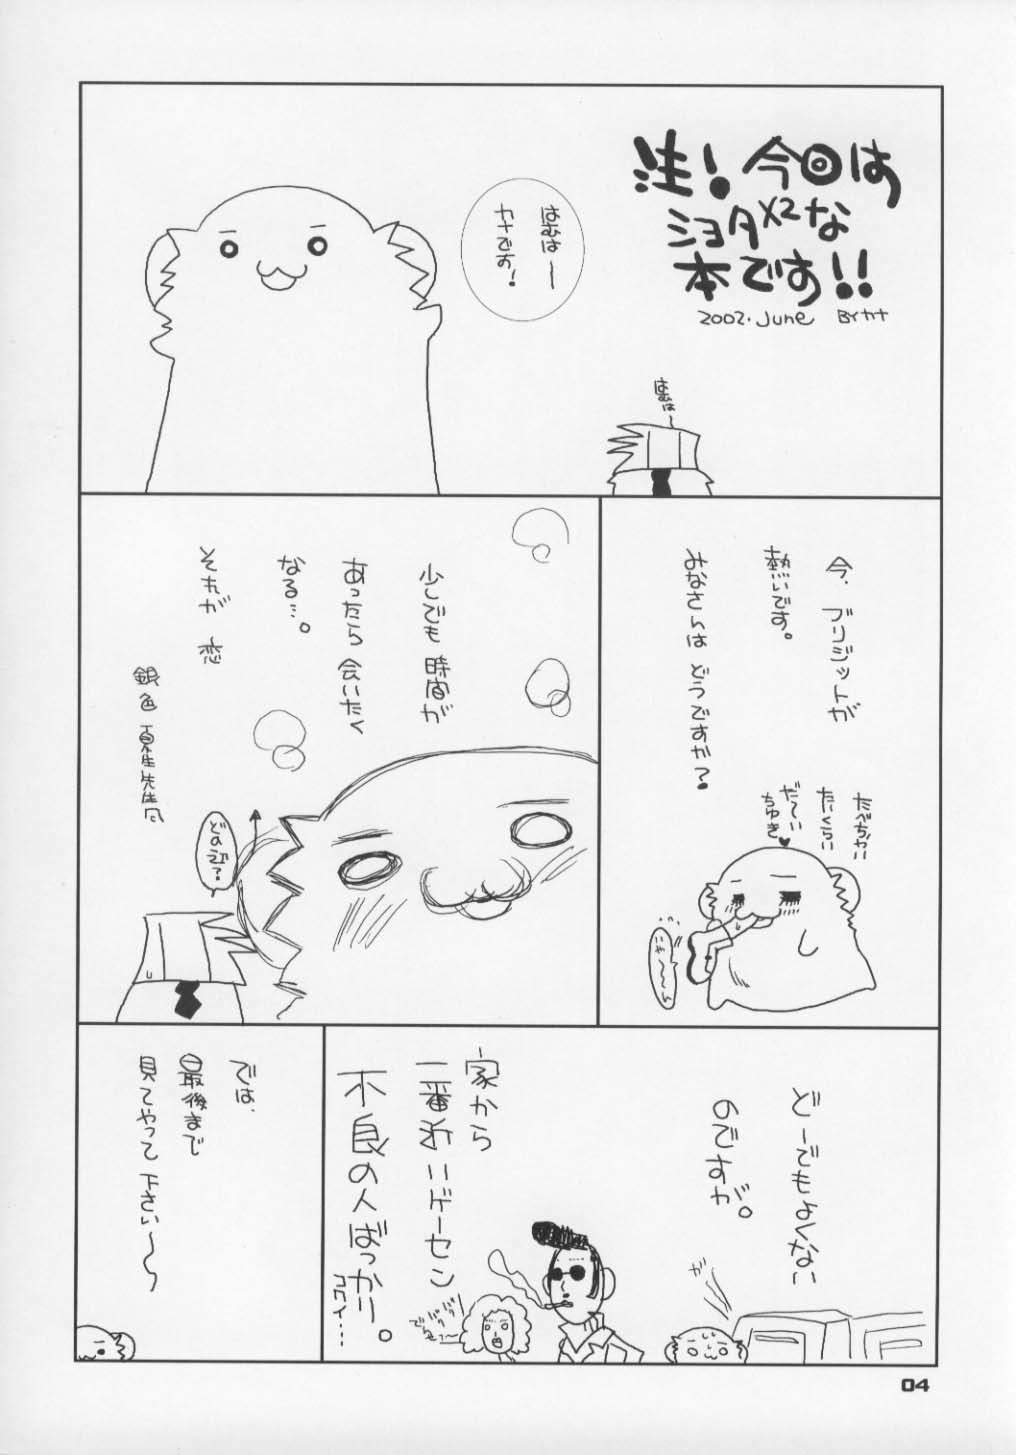 注!今回は
ショタX2な
本です!!
2002.June BYカナ
はむは〜
カナです!
はむは〜
今、ブリジットが
熱いです。
みなさんは どうですか?
たべちゃい
たーくらい
だーい
ちゅき
いや〜〜
少しでも 時間が
あったら 会いたく
なる…。
それが 恋
銀色 夏生先生
どの辺?
どーでもよくない
のですが。
ガ
家から
一番近いゲーセン
不良の人ばっかり。
コワイ…
では、
最後まで
見てやって 下さい〜〜
04